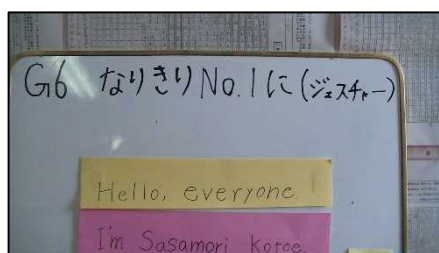 G6 なりきりNo.1に(ジェスチャー)
Hello, everyone!
I'm Sasamori Kotoe.